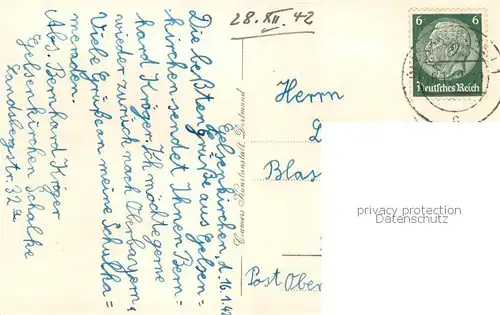 28.XII.42
Gelsenkirchen, d. 16.1.42
Die beßten Grüße aus Gelsen=
kirchen sendet Ihnen Bern=
hard Krüger. Ich möchte gerne
wieder zurück nach Oberbayern.
Viele Grüße an meine Schulka=
meraden.
Abs. Bernhard Krüger
Gelsenkirchen Schalke
Landsbergstr. 32a
Cramers Kunstanstalt, Dortmund
6 6
Deutsches Reich
Herrn
L
Blas
Post Ober
privacy protection
Datenschutz